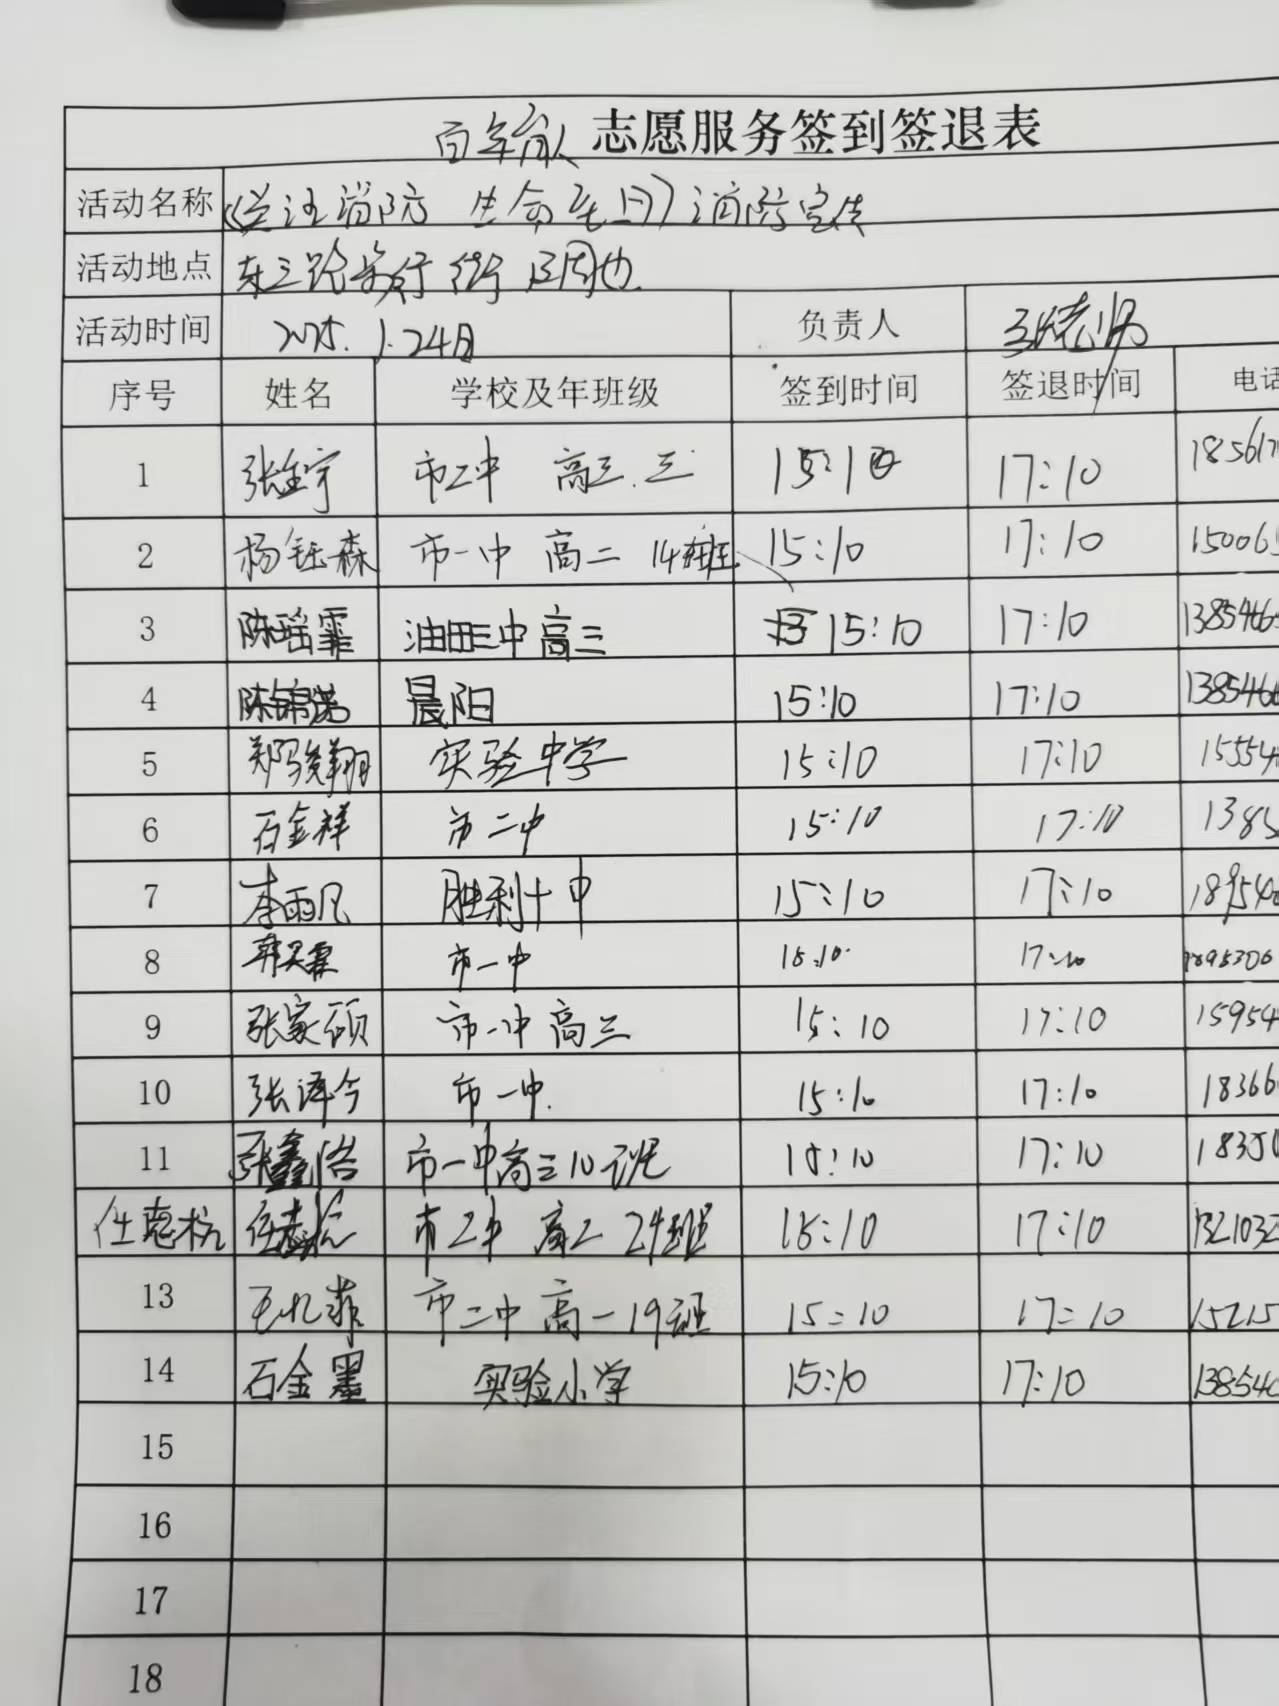 百年育人 志愿服务签到签退表
活动名称 《关注消防 生命至上》消防宣传
活动地点 东三路步行街及周边
活动时间 2025.1.24日 负责人
序号 姓名 学校及年班级 签到时间 签退时间 电话
1 张宇 市二中 高三.三 15:10 17:10 18561
2 杨钰森 市一中 高二 14班 15:10 17:10 15006
3 陈瑶霏 油田三中高三 15:10 17:10 1385466
4 陈锦诺 晨阳 15:10 17:10 1385466
5 郑骏翔 实验中学 15:10 17:10 15554
6 石金祥 市二中 15:10 17:10 1385
7 李雨凡 胜利十中 15:10 17:10 189540
8 市一中 15:10 17:10 1895306
9 张家硕 市一中高三 15:10 17:10 15954
10 张泽今 市一中. 15:10 17:10 18366
11 张鑫 市一中高三10班 15:10 17:10 18350
任志杭 任志杭 市二中 高二 24班 15:10 17:10 132103
13 王忆菲 市二中 高一19班 15:10 17:10 15215
14 石金墨 实验小学 15:10 17:10 138540
15
16
17
18